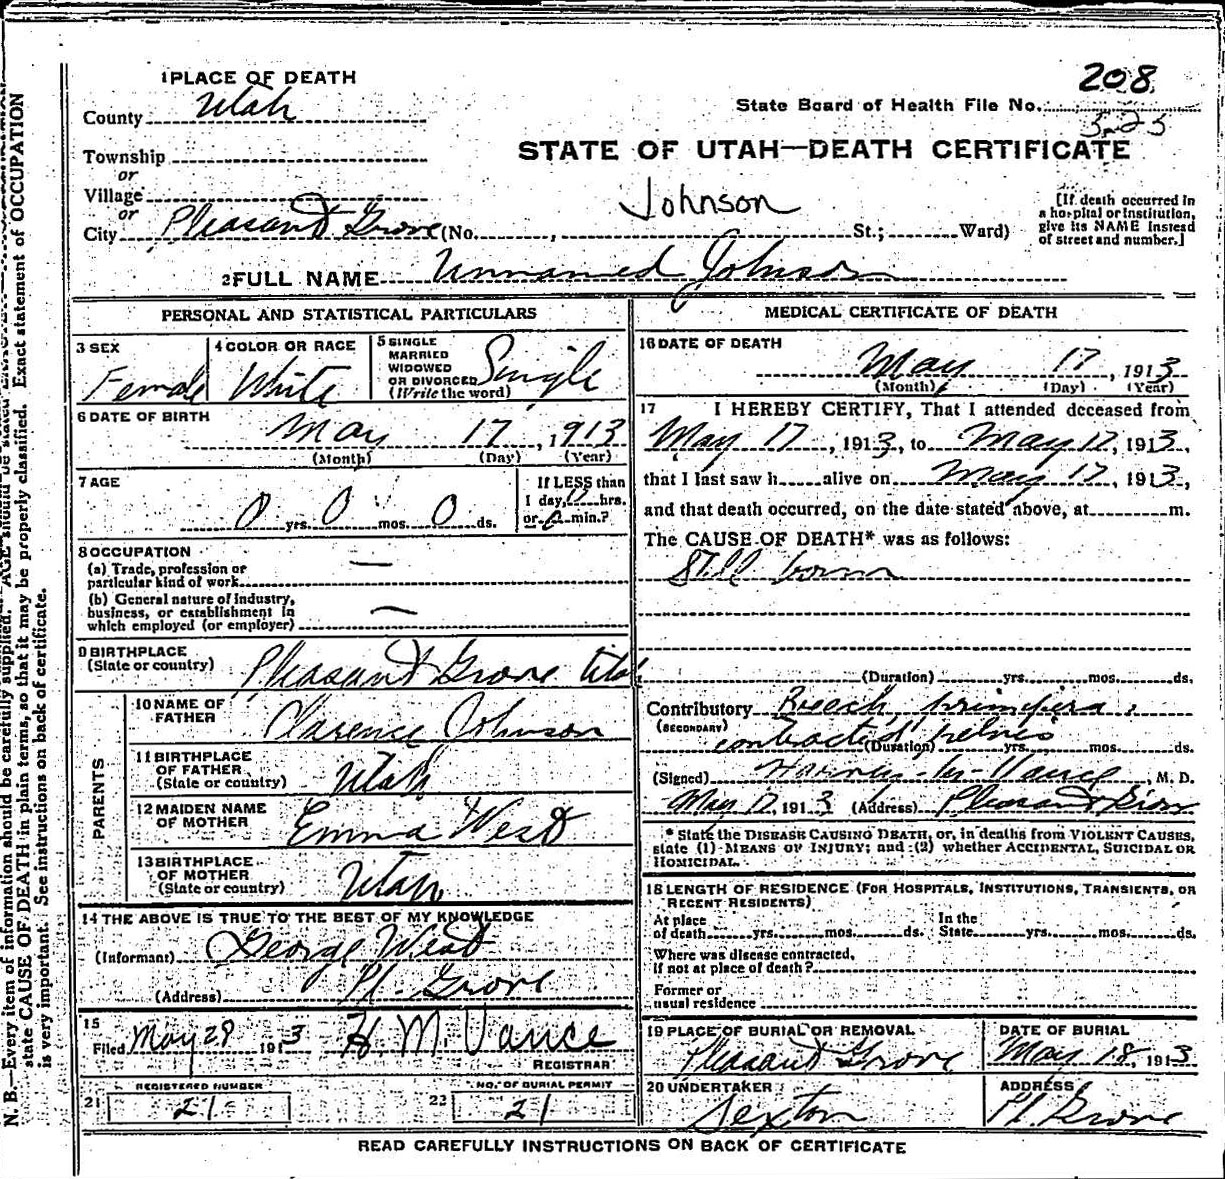 1 PLACE OF DEATH
208
County Utah
State Board of Health File No.
323
Township
STATE OF UTAH—DEATH CERTIFICATE
or
Village
or
Johnson
[If death occurred in
a hospital or institution,
give its NAME instead
of street and number.]
City Pleasant Grove (No. , St.; Ward)
2 FULL NAME Unnamed Johnson
PERSONAL AND STATISTICAL PARTICULARS
3 SEX
Female
4 COLOR OR RACE
White
5 SINGLE
MARRIED
WIDOWED
OR DIVORCED
(Write the word)
Single
6 DATE OF BIRTH
May 17, 1913
(Month) (Day) (Year)
7 AGE
0 yrs. 0 mos. 0 ds.
If LESS than
1 day, 0 hrs.
or 0 min.?
8 OCCUPATION
(a) Trade, profession or
particular kind of work —
(b) General nature of industry,
business, or establishment in
which employed (or employer) —
9 BIRTHPLACE
(State or country) Pleasant Grove Utah
PARENTS
10 NAME OF
FATHER Clarence Johnson
11 BIRTHPLACE
OF FATHER
(State or country) Utah
12 MAIDEN NAME
OF MOTHER Emma West
13 BIRTHPLACE
OF MOTHER
(State or country) Utah
14 THE ABOVE IS TRUE TO THE BEST OF MY KNOWLEDGE
(Informant) George West
(Address) Pl. Grove
15
Filed May 28 1913 H M Vance
REGISTRAR
REGISTERED NUMBER
21 21
NO. OF BURIAL PERMIT
22 21
MEDICAL CERTIFICATE OF DEATH
16 DATE OF DEATH
May 17, 1913
(Month) (Day) (Year)
17 I HEREBY CERTIFY, That I attended deceased from
May 17, 1913, to May 17, 1913,
that I last saw h alive on May 17, 1913,
and that death occurred, on the date stated above, at m.
The CAUSE OF DEATH* was as follows:
Still born
(Duration) yrs. mos. ds.
Contributory Breech, primipara,
(SECONDARY) contracted pelvis
(Duration) yrs. mos. ds.
(Signed) Vance, M. D.
May 17, 1913 (Address) Pleasant Grove
* State the DISEASE CAUSING DEATH, or, in deaths from VIOLENT CAUSES,
state (1) MEANS OF INJURY; and (2) whether ACCIDENTAL, SUICIDAL OR
HOMICIDAL.
18 LENGTH OF RESIDENCE (FOR HOSPITALS, INSTITUTIONS, TRANSIENTS, OR
RECENT RESIDENTS)
At place
of death yrs. mos. ds.
In the
State yrs. mos. ds.
Where was disease contracted,
if not at place of death?
Former or
usual residence
19 PLACE OF BURIAL OR REMOVAL
Pleasant Grove
DATE OF BURIAL
May 18, 1913
20 UNDERTAKER
Sexton
ADDRESS
Pl. Grove
READ CAREFULLY INSTRUCTIONS ON BACK OF CERTIFICATE
N. B.—Every item of information should be carefully supplied. AGE should be stated
state CAUSE OF DEATH in plain terms, so that it may be properly classified. Exact statement of OCCUPATION
is very important. See instructions on back of certificate.